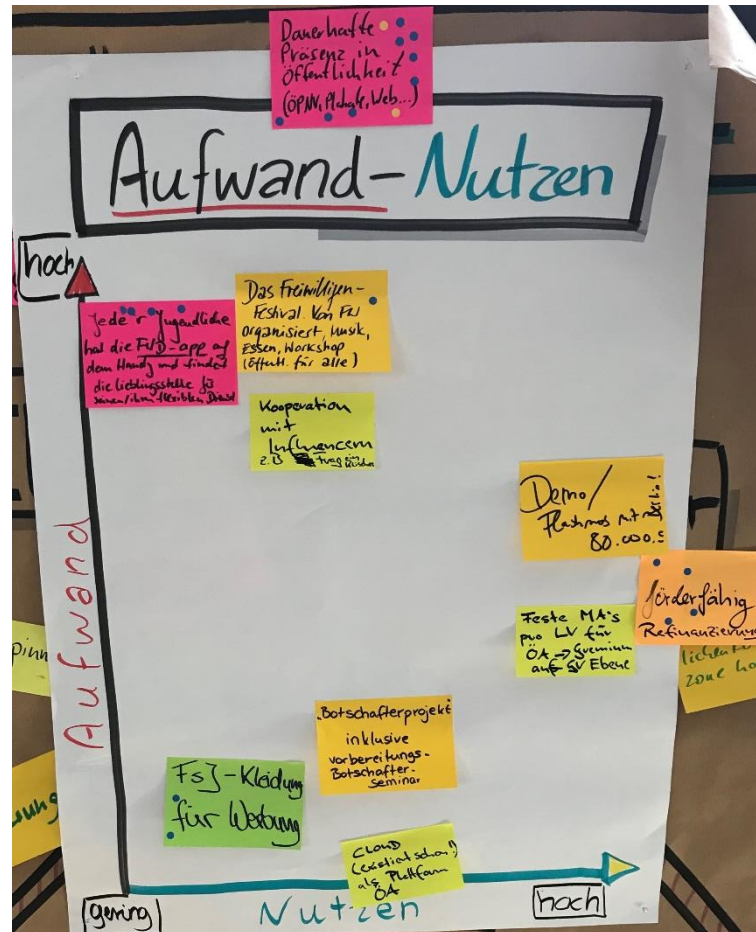 Dauerhafte
Präsenz in
Öffentlichkeit
(ÖPNV, Plakate, Web...)
Aufwand-Nutzen
hoch
Jede r Jugendliche
hat die FWD-app auf
dem Handy und findet
die Lieblingsstelle für
seinen/ihren flexiblen Dienst
Das Freiwilligen-
Festival. Von FW
organisiert, Musik,
Essen, Workshop
(Öffentl. für alle)
Kooperation
mit
Influencern
z.B
Demo/
Flashmob mit
80.000
förderfähig
Refinanzierung
Feste MA's
pro LV für
ÖA → Gremium
auf BV Ebene
lichen
zone
pinn
Aufwand
Botschafterprojekt
inklusive
vorbereitungs-
Botschafter-
seminar
FSJ-Kleidung
für Werbung
CLOUD
(existiert schon!)
als Plattform
ÖA
gering
Nutzen
hoch